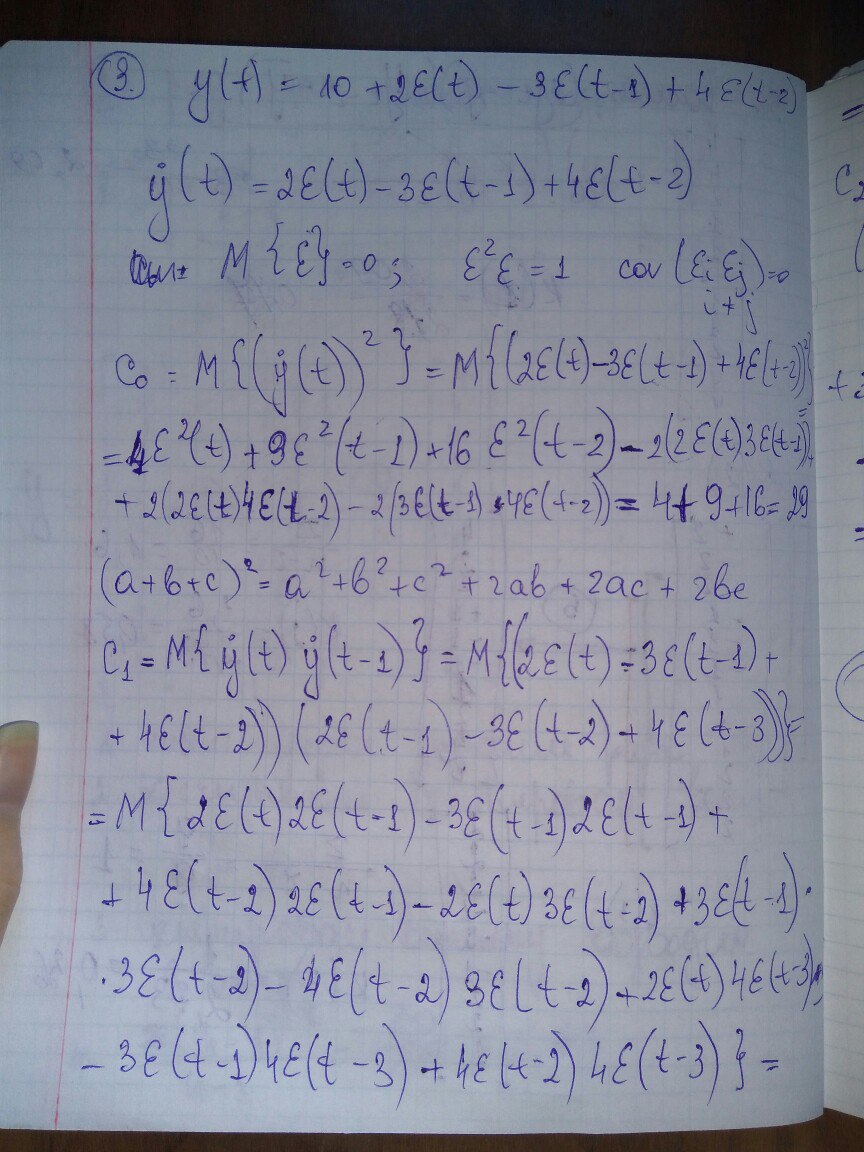 3. y(t) = 10 + 2ε(t) - 3ε(t-1) + 4ε(t-2)
ẏ(t) = 2ε(t) - 3ε(t-1) + 4ε(t-2)
M{ε} = 0; ε²ε = 1 cov(εi εj) = 0
i ≠ j
C₀ = M{(ẏ(t))²} = M{(2ε(t) - 3ε(t-1) + 4ε(t-2))²} =
= 4ε²(t) + 9ε²(t-1) + 16 ε²(t-2) - 2(2ε(t)3ε(t-1)) +
+ 2(2ε(t)4ε(t-2) - 2(3ε(t-1) · 4ε(t-2)) = 4 + 9 + 16 = 29
(a+b+c)² = a² + b² + c² + 2ab + 2ac + 2bc
C₁ = M{ẏ(t) ẏ(t-1)} = M{(2ε(t) - 3ε(t-1) +
+ 4ε(t-2)) (2ε(t-1) - 3ε(t-2) + 4ε(t-3))} =
= M{2ε(t)2ε(t-1) - 3ε(t-1)2ε(t-1) +
+ 4ε(t-2)2ε(t-1) - 2ε(t)3ε(t-2) + 3ε(t-1) ·
· 3ε(t-2) - 4ε(t-2)3ε(t-2) + 2ε(t)4ε(t-3)
- 3ε(t-1)4ε(t-3) + 4ε(t-2)4ε(t-3)} =